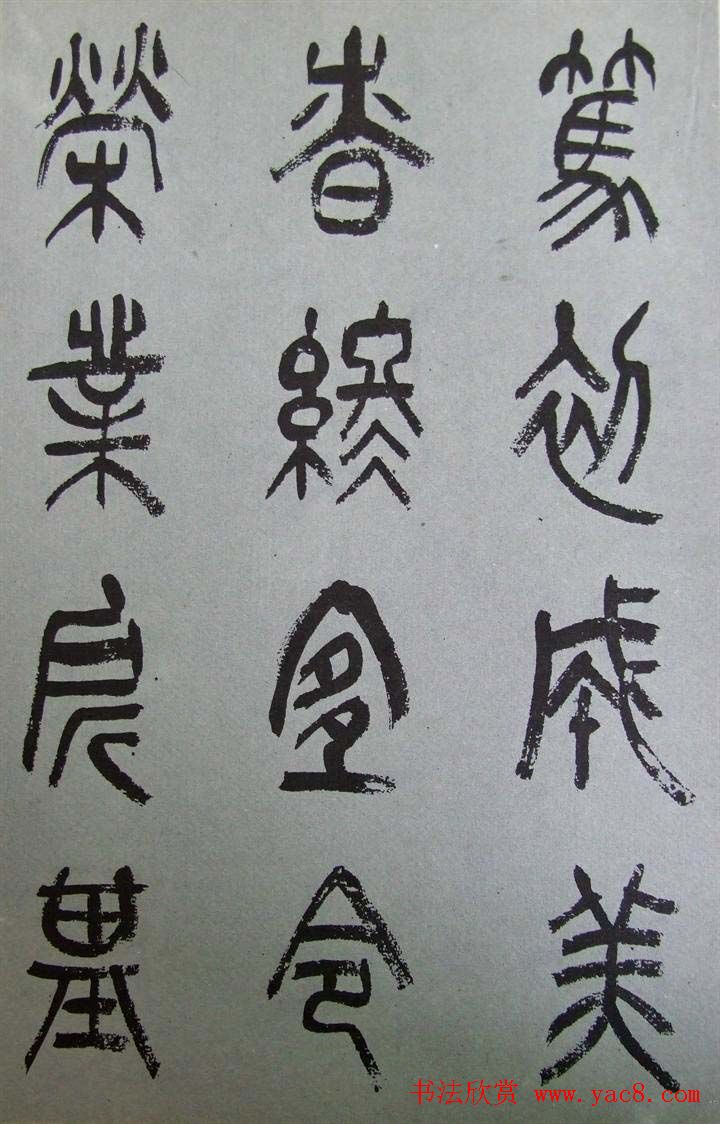 篤初成美
昚終宜令
榮業所基
书法欣赏 www.yac8.com